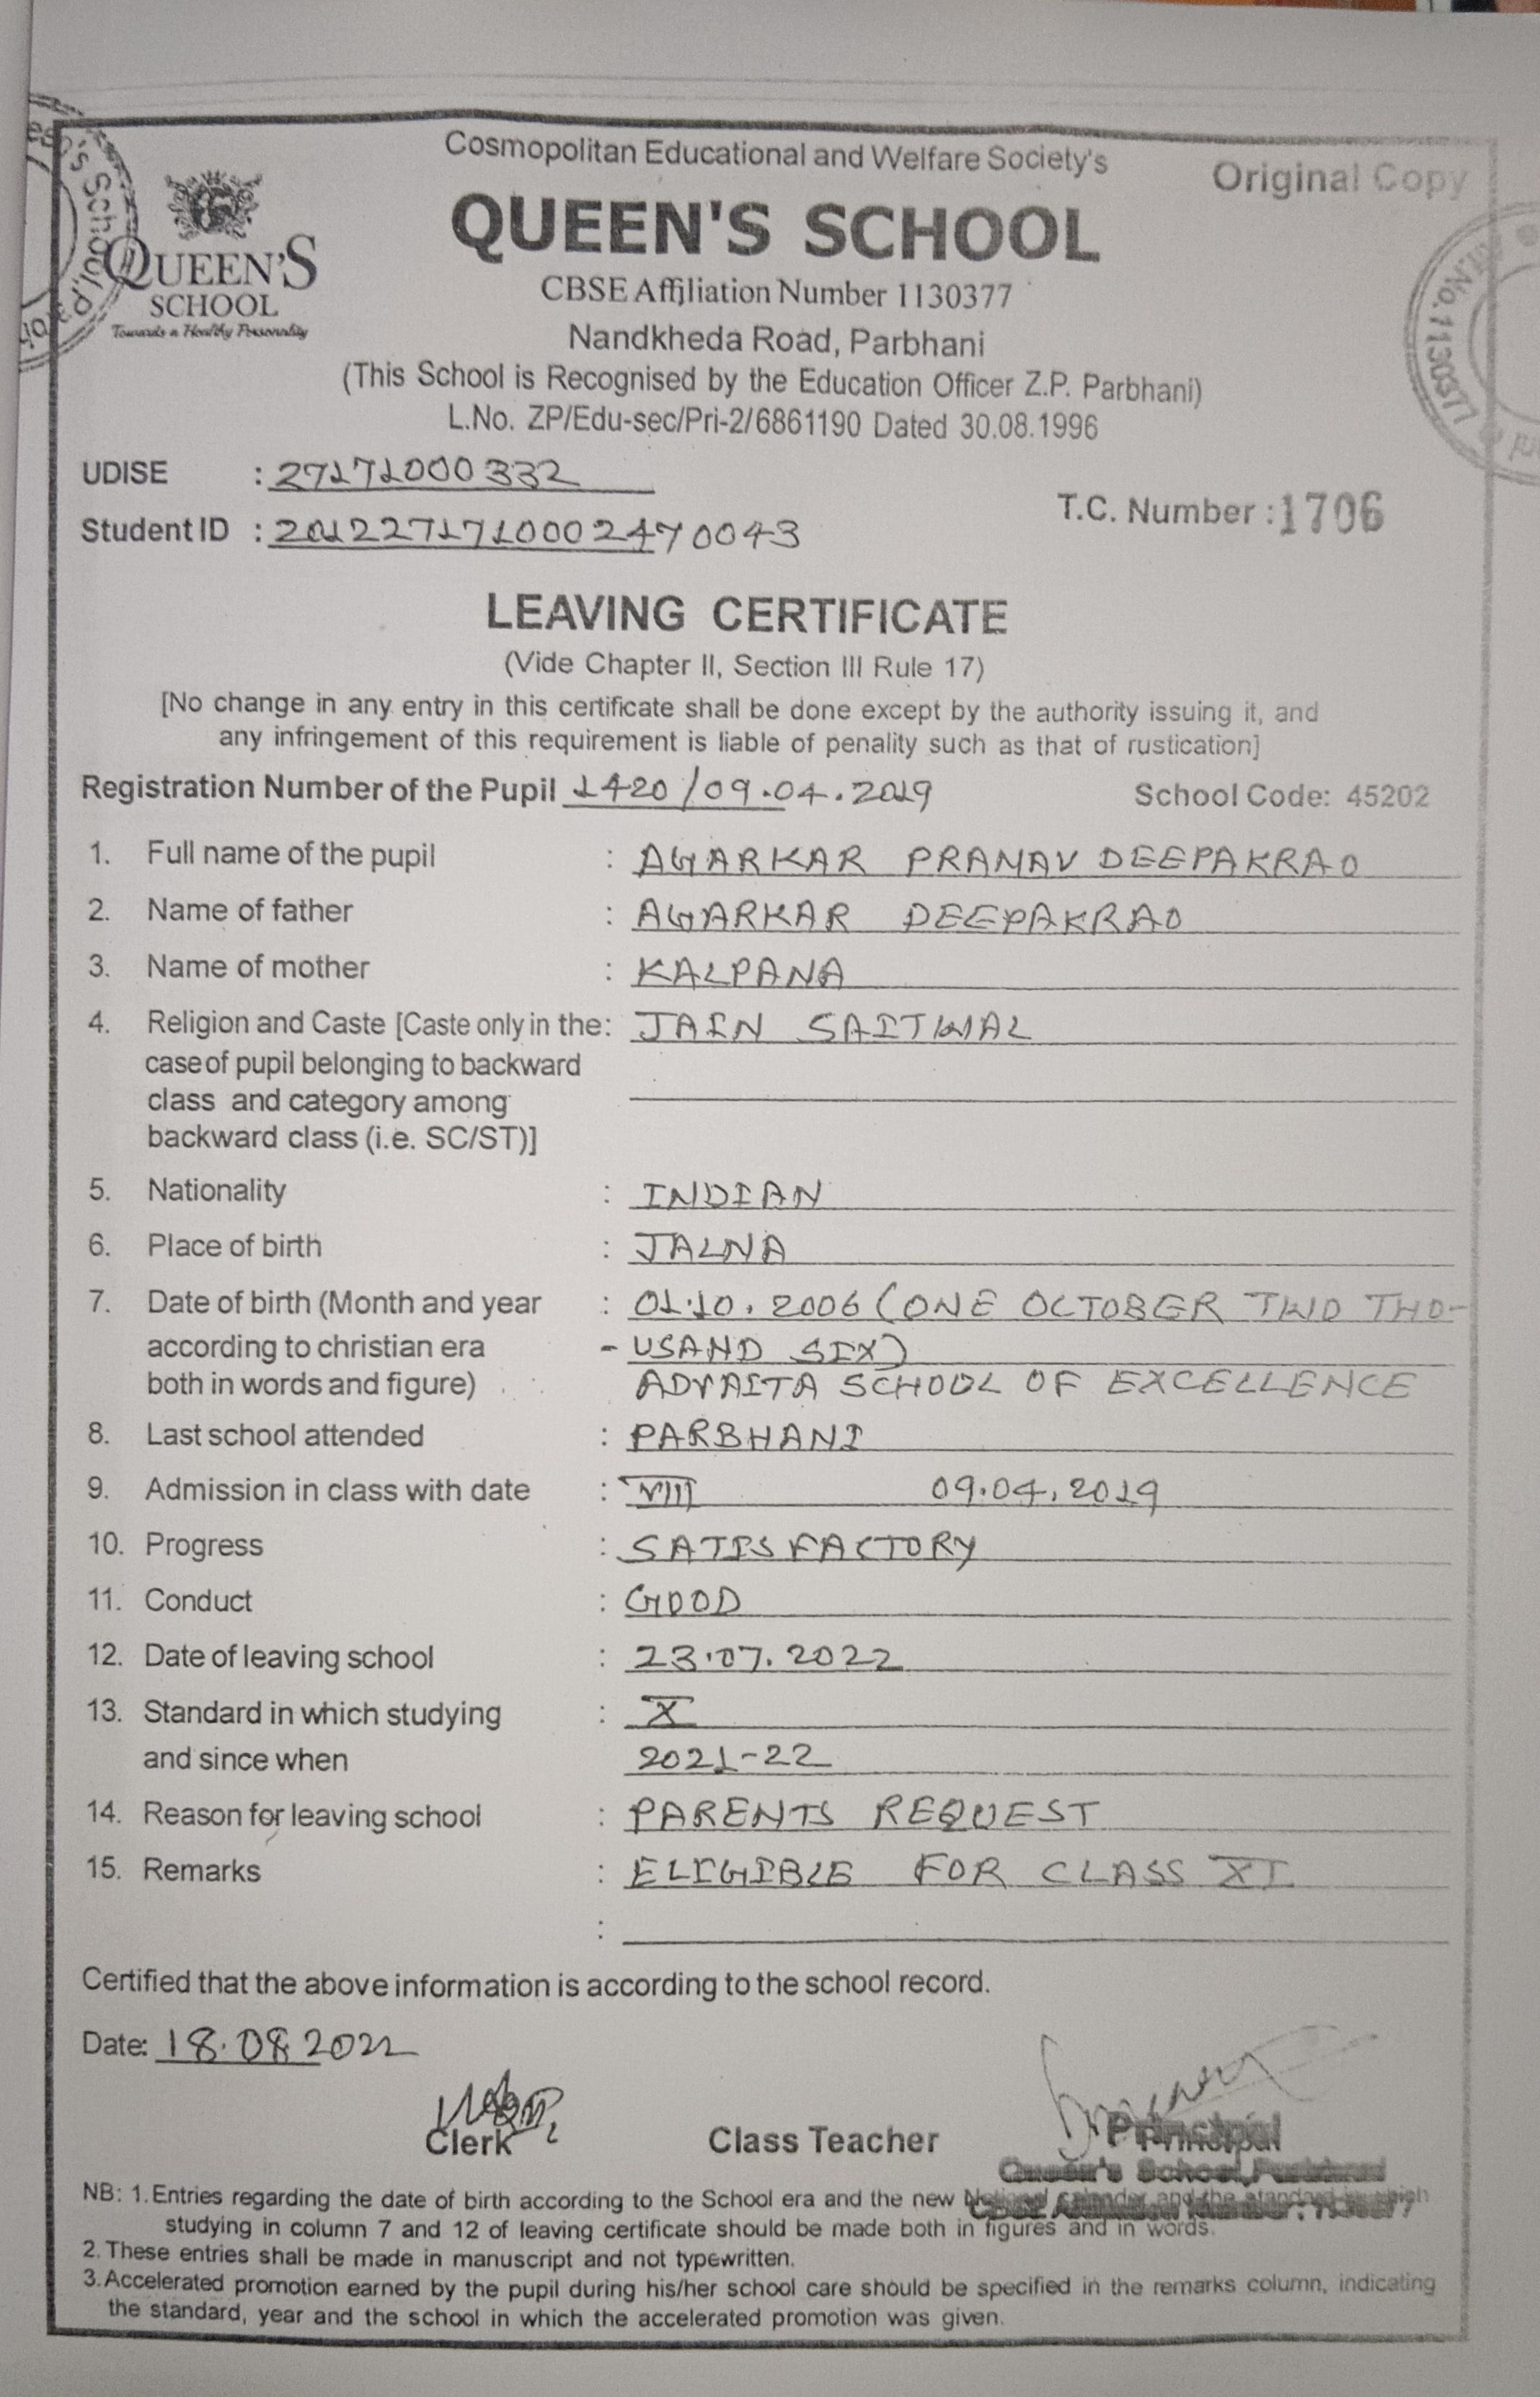 Cosmopolitan Educational and Welfare Society's
Original Copy
QUEEN'S SCHOOL
QUEEN'S
SCHOOL
Towards a Healthy Personality
CBSE Affiliation Number 1130377
Nandkheda Road, Parbhani
(This School is Recognised by the Education Officer Z.P. Parbhani)
L.No. ZP/Edu-sec/Pri-2/6861190 Dated 30.08.1996
UDISE : 27171000332
Student ID : 2012271710002470043
T.C. Number : 1706
LEAVING CERTIFICATE
(Vide Chapter II, Section III Rule 17)
[No change in any entry in this certificate shall be done except by the authority issuing it, and
any infringement of this requirement is liable of penality such as that of rustication]
Registration Number of the Pupil 1420/09.04.2019 School Code: 45202
1. Full name of the pupil : AGARKAR PRANAV DEEPAKRAO
2. Name of father : AGARKAR DEEPAKRAO
3. Name of mother : KALPANA
4. Religion and Caste [Caste only in the: JAIN SAITWAL
case of pupil belonging to backward
class and category among
backward class (i.e. SC/ST)]
5. Nationality : INDIAN
6. Place of birth : JALNA
7. Date of birth (Month and year : 01.10.2006 (ONE OCTOBER TWO THO-
according to christian era - USAND SIX)
both in words and figure) ADVAITA SCHOOL OF EXCELLENCE
8. Last school attended : PARBHANI
9. Admission in class with date : VIII 09.04.2019
10. Progress : SATISFACTORY
11. Conduct : GOOD
12. Date of leaving school : 23.07.2022
13. Standard in which studying : X
and since when 2021-22
14. Reason for leaving school : PARENTS REQUEST
15. Remarks : ELIGIBLE FOR CLASS XI
:
Certified that the above information is according to the school record.
Date: 18.08.2022
Clerk Class Teacher Principal
Queen's School, Parbhani
NB: 1. Entries regarding the date of birth according to the School era and the new National calander and the standard in which
studying in column 7 and 12 of leaving certificate should be made both in figures and in words.
2. These entries shall be made in manuscript and not typewritten.
3. Accelerated promotion earned by the pupil during his/her school care should be specified in the remarks column, indicating
the standard, year and the school in which the accelerated promotion was given.